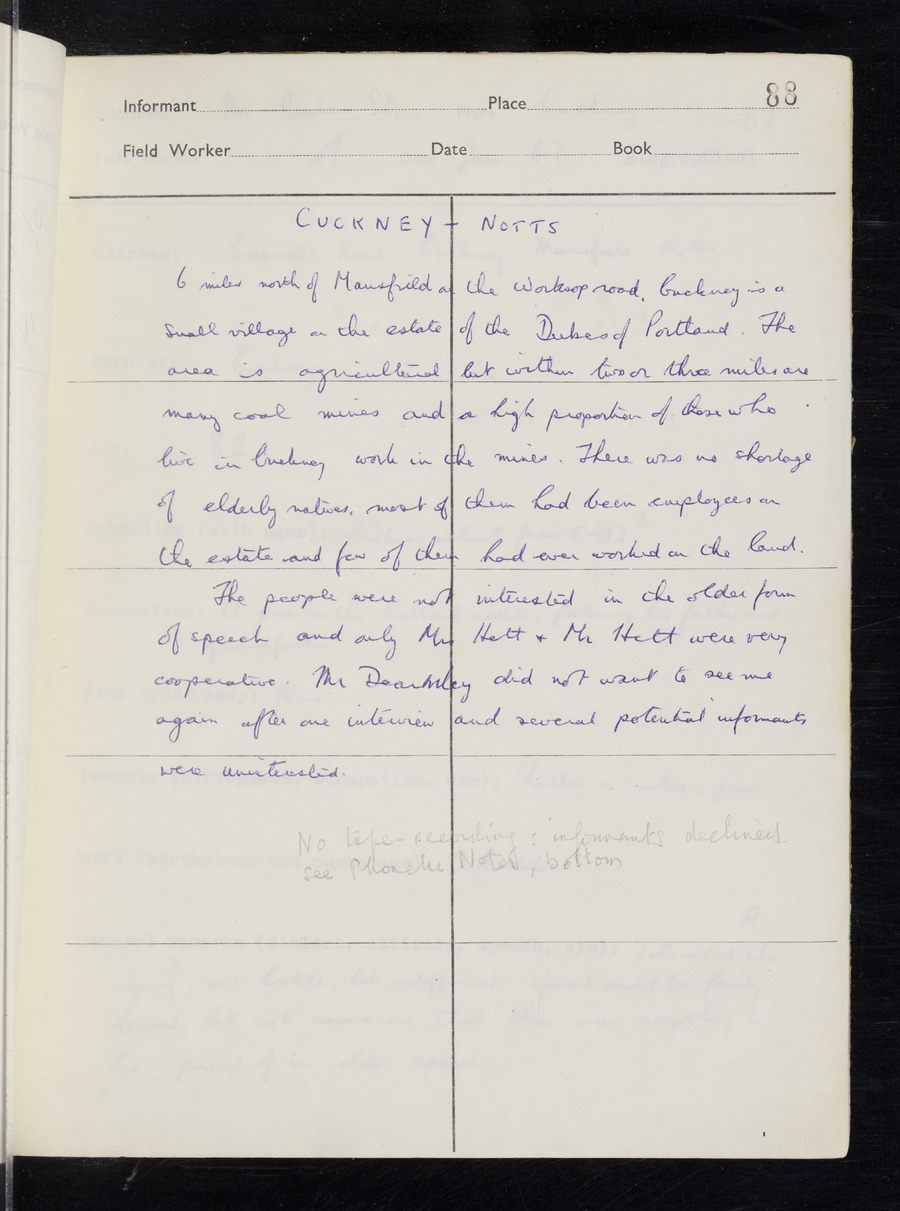 88
Informant Place
Field Worker Date Book
CUCKNEY - NOTTS
6 miles north of Mansfield on the Worksop road, Cuckney is a
small village on the estate of the Dukes of Portland. The
area is agricultural but within two or three miles are
many coal mines and a high proportion of those who
live in Cuckney work in the mines. There was no shortage
of elderly natives, most of them had been employees on
the estate and few of them had ever worked on the land.
The people were not interested in the older form
of speech and only Mrs Hett & Mr Hett were very
cooperative. Mr did not want to see me
again after one interview and several potential informants
were uninterested.
No tape-recording: informants declined.
see Phonetic Notes, bottom